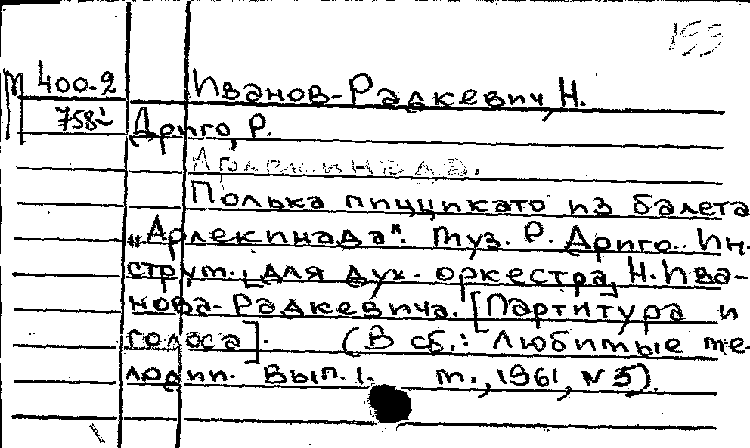 153
М 400-2 Иванов-Радкевич, Н.
758 Дриго, Р.
Арлекинада.
Полька пиццикато из балета
„Арлекинада". Муз. Р. Дриго. Ин-
струм. [для дух. оркестра] Н. Ива-
нова-Радкевича. [Партитура и
голоса]. (В сб.: Любимые ме-
лодии. Вып. 1. М., 1961, № 5).